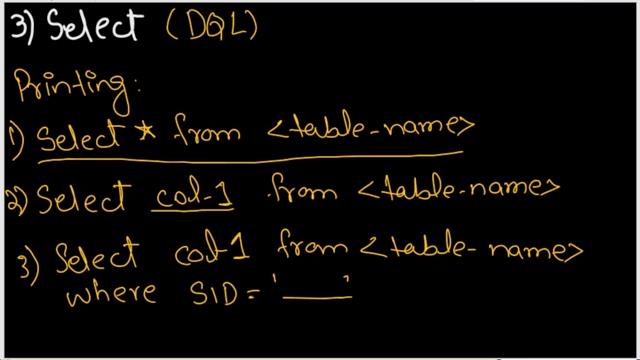 3) Select (DQL)
Printing:
1) Select * from <table-name>
2) Select col-1 from <table-name>
3) Select col-1 from <table-name>
where SID = '____'